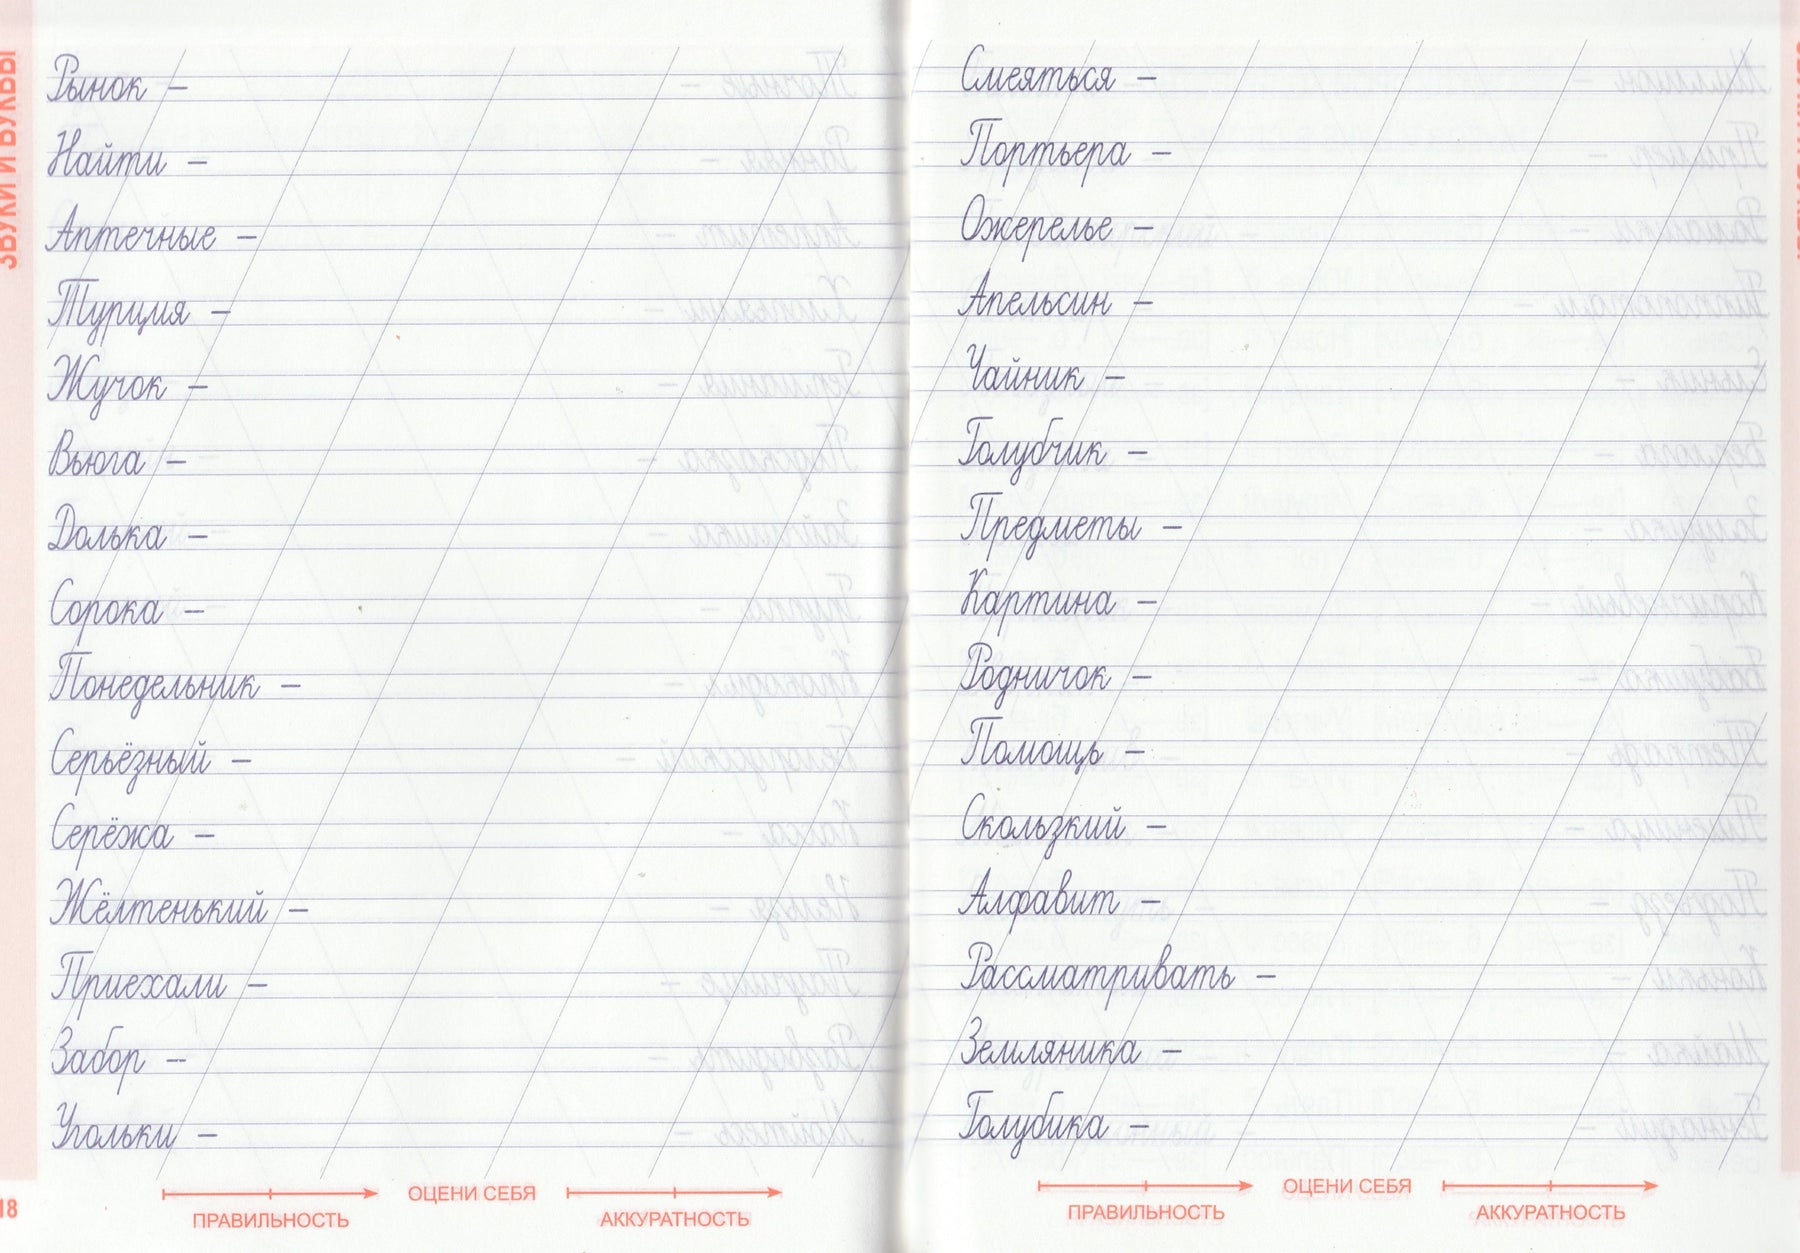 ЗВУКИ И БУКВЫ
Рынок –
Найти –
Аптечные –
Турция –
Жучок –
Вьюга –
Долька –
Сорока –
Понедельник –
Серьёзный –
Серёжа –
Жёлтенький –
Приехали –
Забор –
Угольки –
ОЦЕНИ СЕБЯ
ПРАВИЛЬНОСТЬ АККУРАТНОСТЬ
18
Смеяться –
Портьера –
Ожерелье –
Апельсин –
Чайник –
Голубчик –
Предметы –
Картина –
Родничок –
Помощь –
Скользкий –
Алфавит –
Рассматривать –
Земляника –
Голубика –
ОЦЕНИ СЕБЯ
ПРАВИЛЬНОСТЬ АККУРАТНОСТЬ